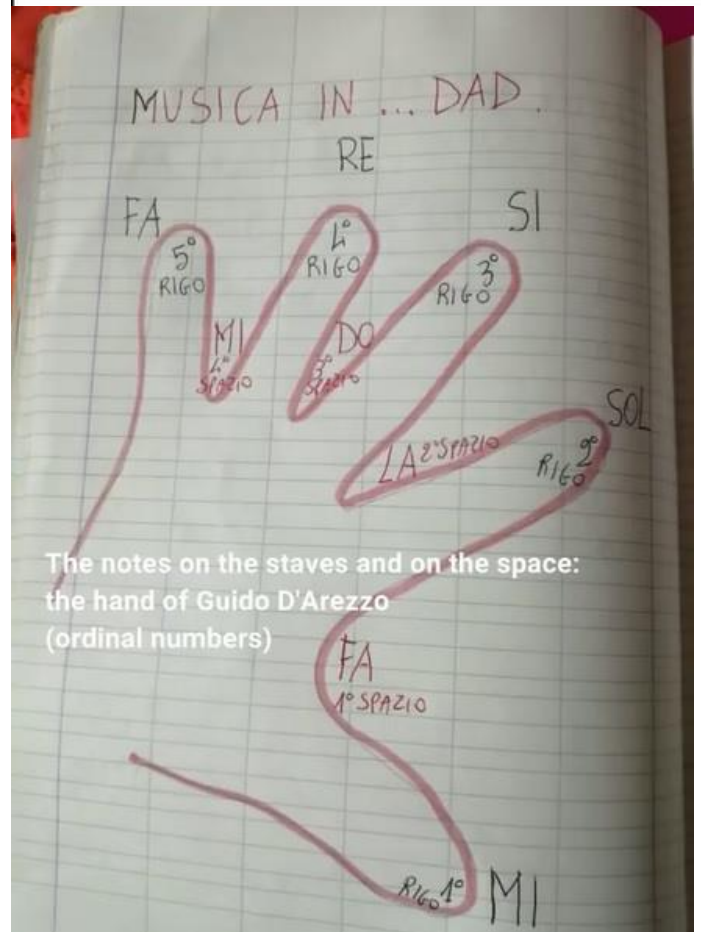 MUSICA IN ... DAD.
RE
FA
SI
5°
RIGO
4°
RIGO
3°
RIGO
MI
4°
SPAZIO
DO
3°
SPAZIO
SOL
LA 2° SPAZIO
2°
RIGO
The notes on the staves and on the space:
the hand of Guido D'Arezzo
(ordinal numbers)
FA
1° SPAZIO
RIGO 1°
MI